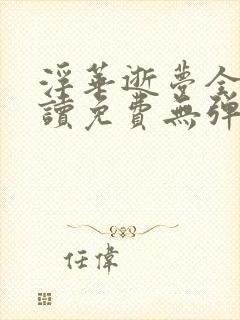 淫華逝夢全
讀免費無彈
任偉